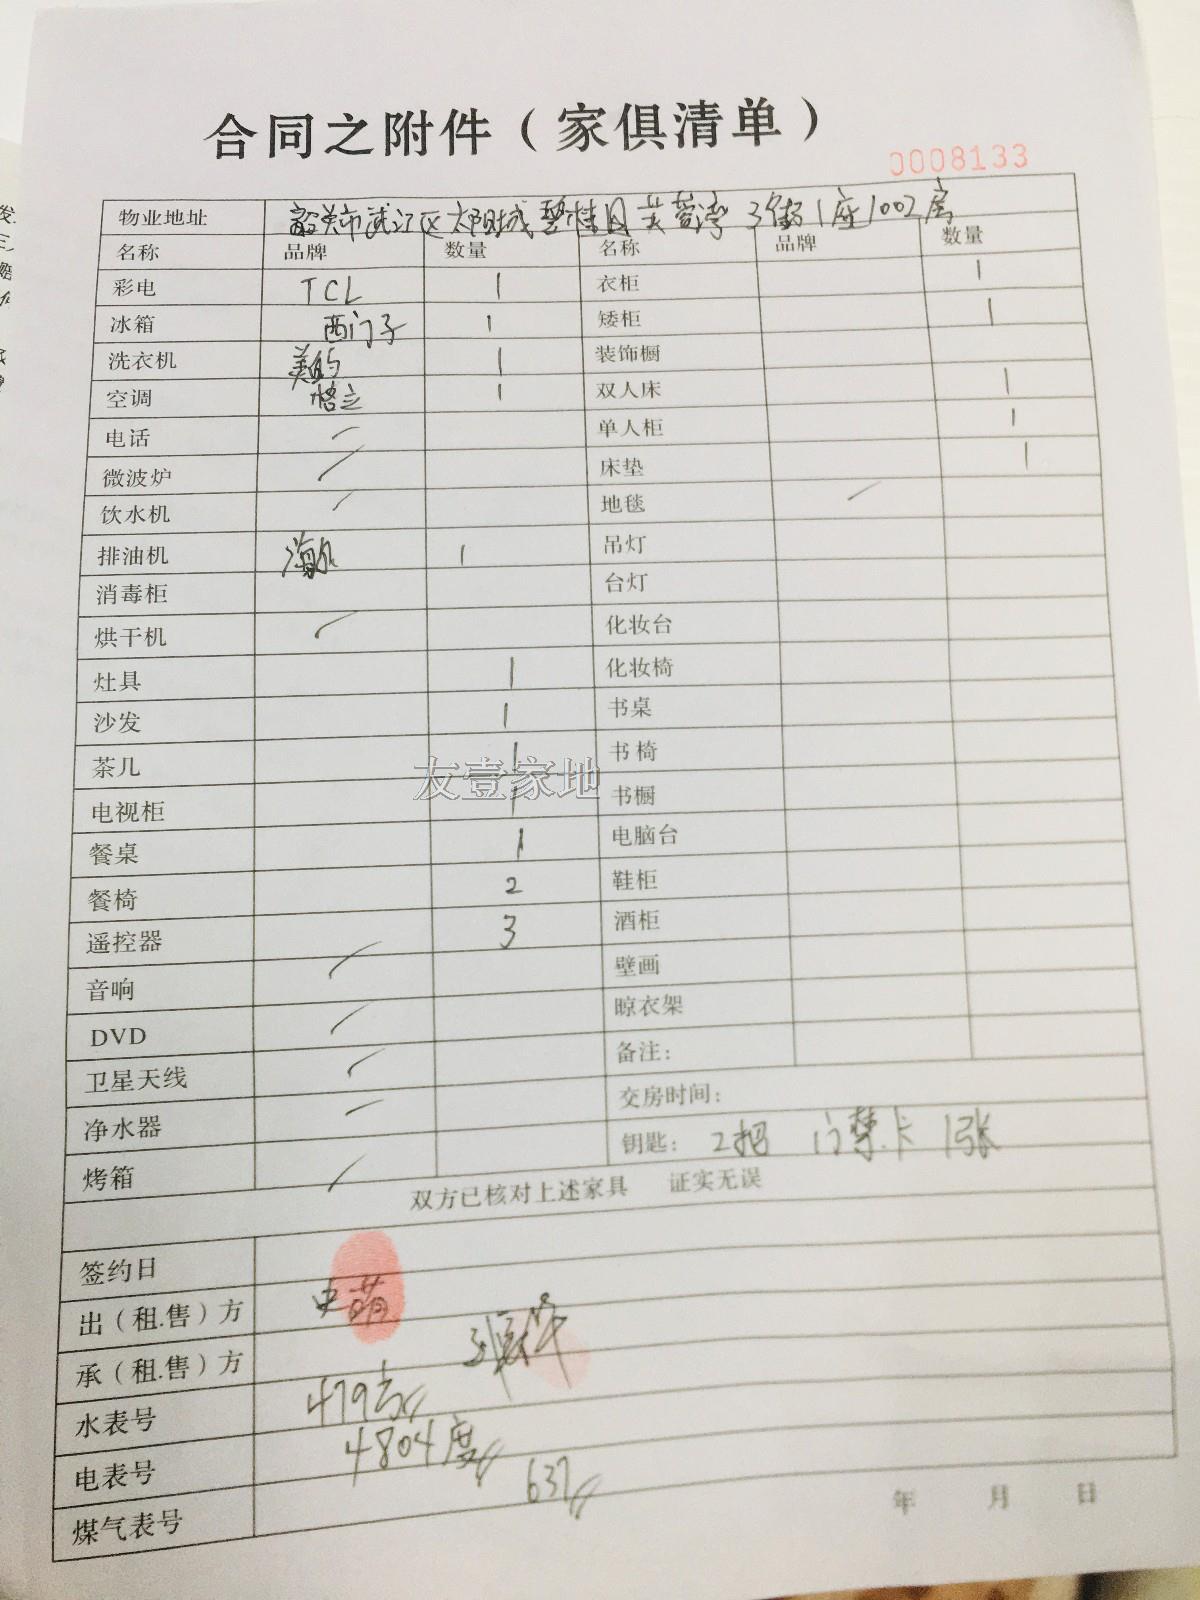 合同之附件（家俱清单）
0008133
物业地址 韶关市武江区太阳城碧桂园芙蓉湾3街1座1002房
名称 品牌 数量 名称 品牌 数量
彩电 TCL 1 衣柜 1
冰箱 西门子 1 矮柜 1
洗衣机 美的 1 装饰橱
空调 格力 1 双人床 1
电话 / 单人柜 1
微波炉 / 床垫 1
饮水机 / 地毯 /
排油机 1 吊灯
消毒柜 台灯
烘干机 / 化妆台
灶具 1 化妆椅
沙发 1 书桌
茶几 1 书椅
电视柜 1 书橱
餐桌 1 电脑台
餐椅 2 鞋柜
遥控器 3 酒柜
音响 / 壁画
DVD / 晾衣架
卫星天线 / 备注：
净水器 / 交房时间：
烤箱 / 钥匙：2把 门禁卡1张
双方已核对上述家具 证实无误
签约日
出（租.售）方 史萌
承（租.售）方
水表号 479方
电表号 4804度
煤气表号 637
年 月 日
友壹家地